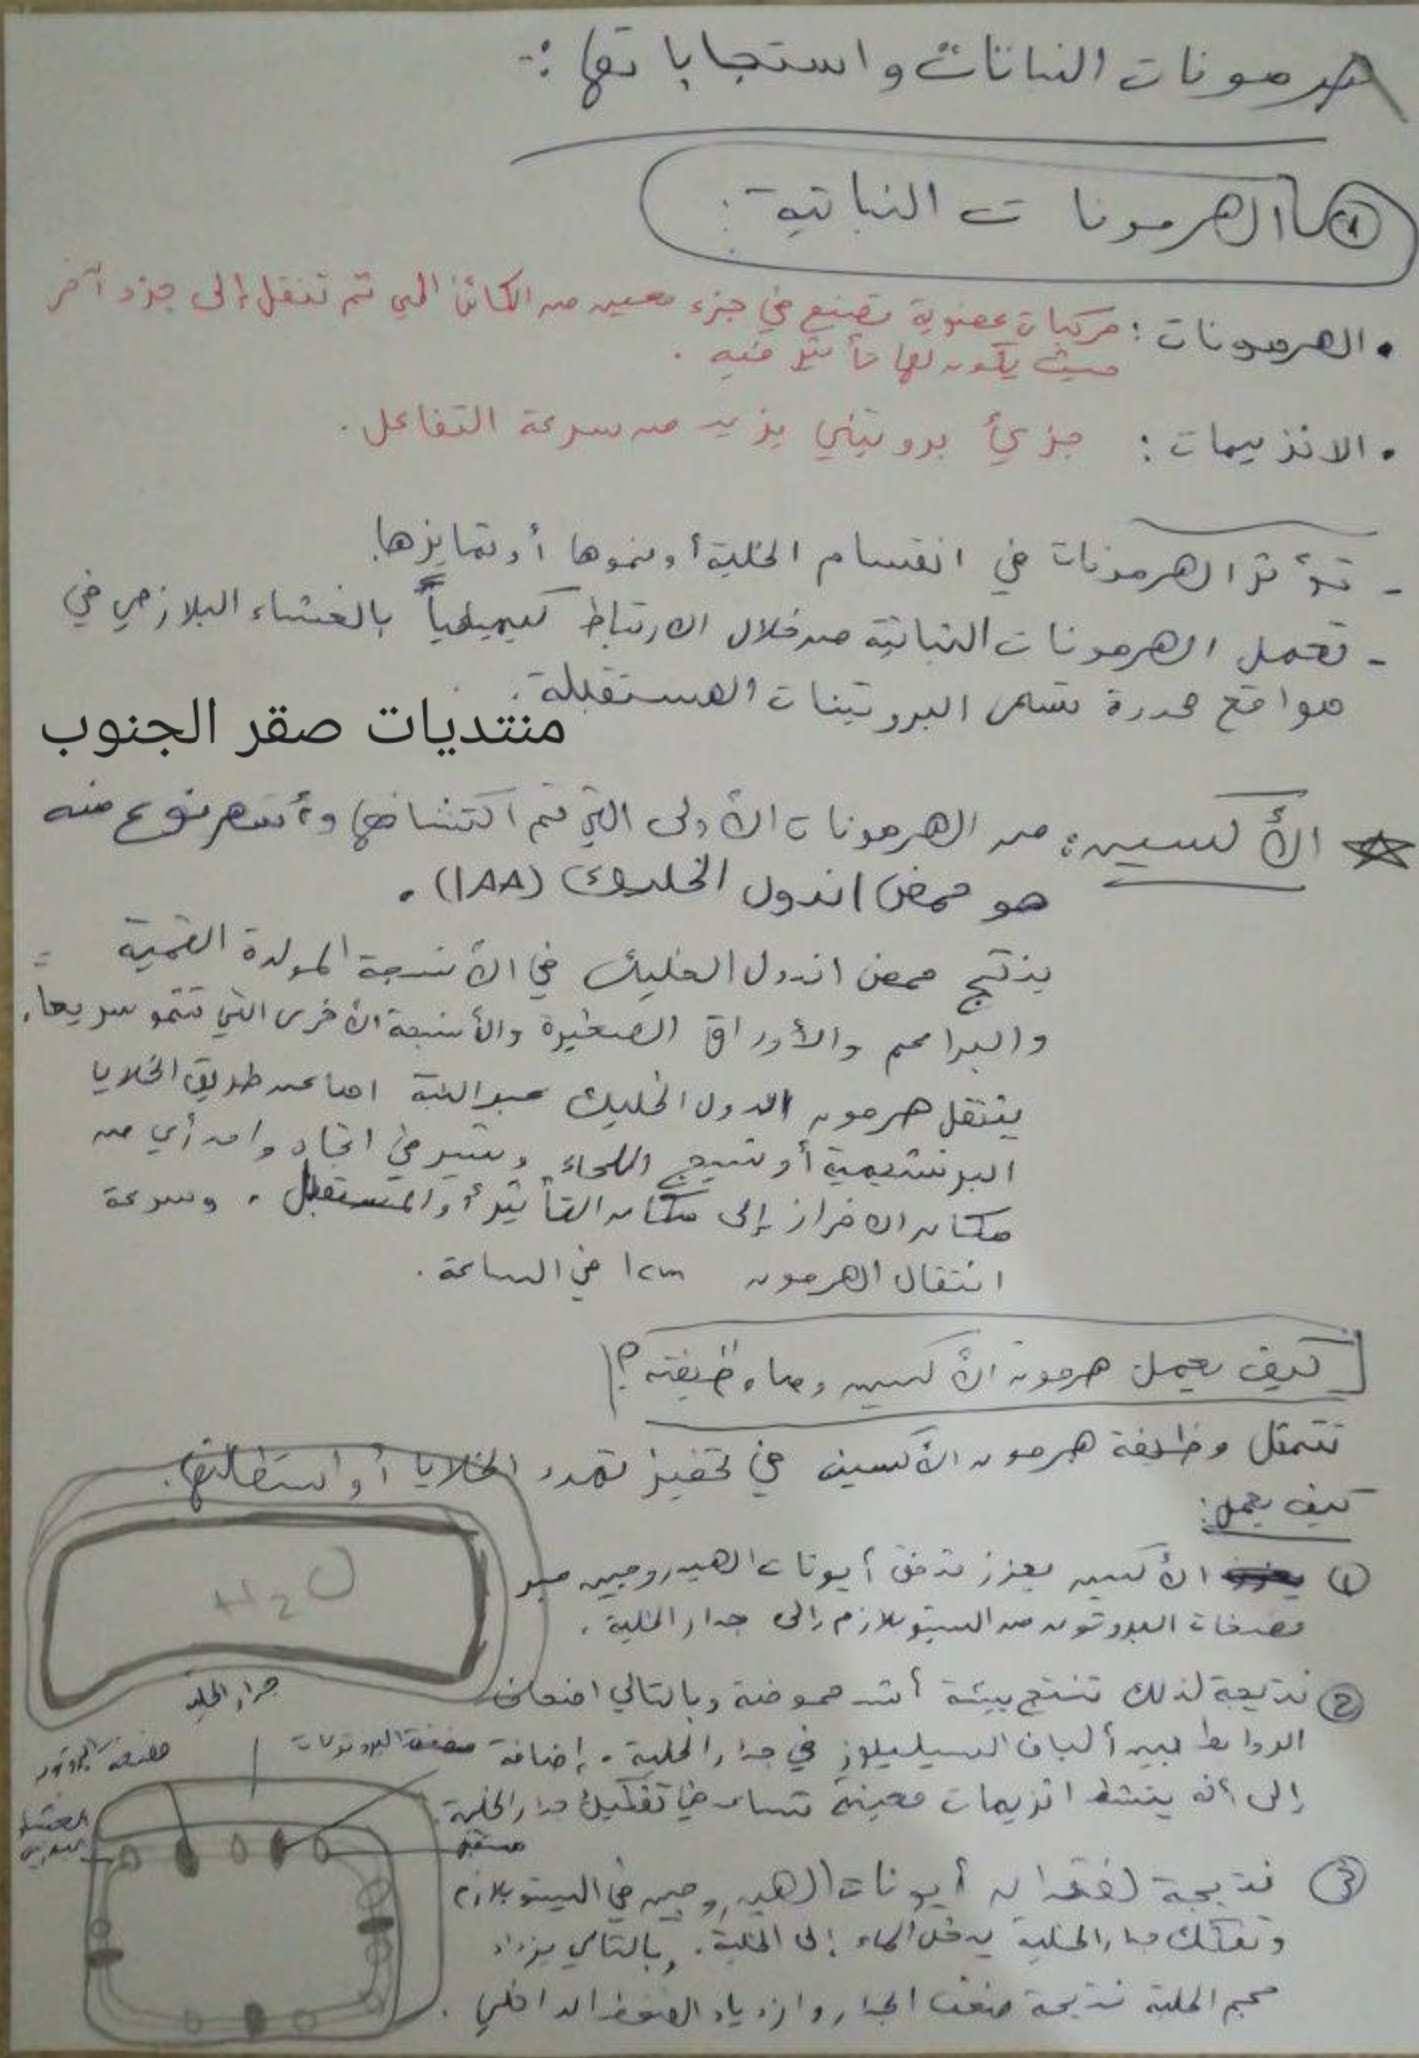 هرمونات النباتات واستجاباتها :-
① الهرمونات النباتية :
• الهرمونات : مركبات عضوية تصنع في جزء معين من الكائن الحي ثم تنقل إلى جزء آخر
حيث يكون لها تأثير فيه .
• الانزيمات : جزيئ بروتيني يزيد من سرعة التفاعل .
- تؤثر الهرمونات في انقسام الخلية أو نموها أو تمايزها.
- تعمل الهرمونات النباتية من خلال الارتباط كيميائياً بالغشاء البلازمي في
مواقع محددة تسمى البروتينات المستقبلة .
منتديات صقر الجنوب
الأكسين : من الهرمونات الأولى التي تم اكتشافها وأشهر نوع منه
هو حمض اندول الخليك (IAA) .
ينتج حمض اندول الخليك في الأنسجة المولدة القمية
والبراعم والأوراق الصغيرة والأنسجة الأخرى التي تنمو سريعا.
ينتقل هرمون اندول الخليك عبر النبتة اما عن طريق الخلايا
البرنشيمية أو نسيج اللحاء ويسير في اتجاه واحد أي من
مكان الافراز إلى مكان التأثير أو المستقبل . وسرعة
انتقال الهرمون 1cm في الساعة .
كيف يعمل هرمون الأكسين وما وظيفته ؟
تتمثل وظيفة هرمون الأكسين في تحفيز تمدد الخلايا أو استطالتها.
كيف يعمل :
① الأكسين يعزز تدفق أيونات الهيدروجين عبر
مضخات البروتون من السيتوبلازم إلى جدار الخلية .
② نتيجة لذلك تنتج بيئة أشد حموضة وبالتالي اضعاف
الروابط بين ألياف السيليلوز في جدار الخلية . إضافة
إلى أنه ينشط انزيمات معينة تساعد في تفكيك جدار الخلية.
③ نتيجة لفقدان أيونات الهيدروجين في السيتوبلازم
وتفكك جدار الخلية يدخل الماء إلى الخلية . بالتالي يزداد
حجم الخلية نتيجة ضعف الجدار وازدياد الضغط الداخلي .
H2O
جدار الخلية
مضخة البروتونات
مضخة البروتون
الغشاء
مستقبل